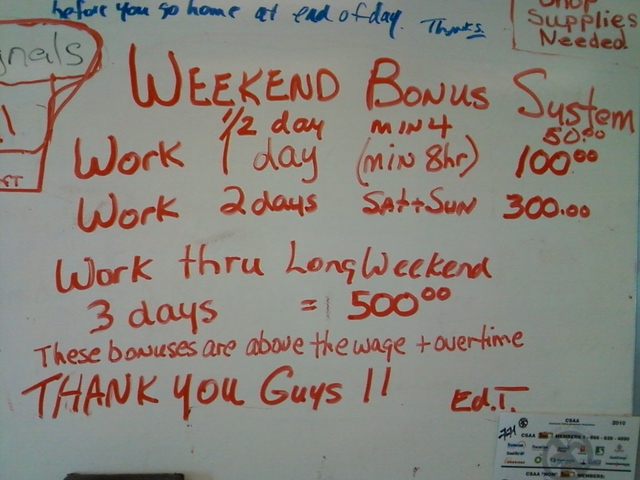 before you go home at end of day. Thanks
Shop
Supplies
Needed
gnals
!
WEEKEND BONUS System
1/2 day min 4 50.00
Work 1 day (min 8hr) 100.00
Work 2 days SAT+SUN 300.00
Work thru Long Weekend
3 days = 500.00
These bonuses are above the wage + overtime
THANK YOU Guys !!
Ed.T.
CSAA 2010